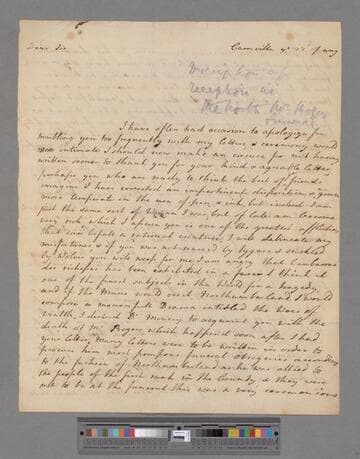 Dear Sir
Carrville ye 22d of may
Description of
reception in
the North Mr Rogers
funeral
I have often had occasion to apologize for
troubling you too frequently with my letters, & ceremony would
now intimate I should now make an excuse for not having
written sooner to thank you for your kind & agreable letter,
perhaps you who are ready to think the best of friends
imagine I have corrected an impertinent disposition, & grown
more temperate in the use of pen & ink, but indeed I am
just the same sort of Woman I was, but of late am become
very rich which I assure you is one of the greatest afflictions
that can befall a rational creature. I will deliniate my
misfortunes & if you was not nursed by Tygers & suckled
by Wolves you will weep for me. I am angry that L'embaras
des richesses has been exhibited in a farce I think it
one of the finest subjects in the World for a tragedy,
and if the Muses would visit Northumberland I would
compose a mournfull Drama intitled the Woes of
Wealth. I desired Dr Monsey to acquaint you with the
death of Mr Rogers, which happen'd soon after I had
your letter, Many letters were to be written in order to
procure him most pompous funeral obsequies according
to the fashion of Northumberland as he was allied to
the people of the first rank in the County & they were
all to be at the funeral this was a very common cons